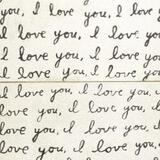 you, I love you, I love
I love you, I love you,
I love you, I love you
I love you, I love you
I love you, I love you,
love you, I love you,
love you, I love you, I
you, I love you, I love
love you, I love you,